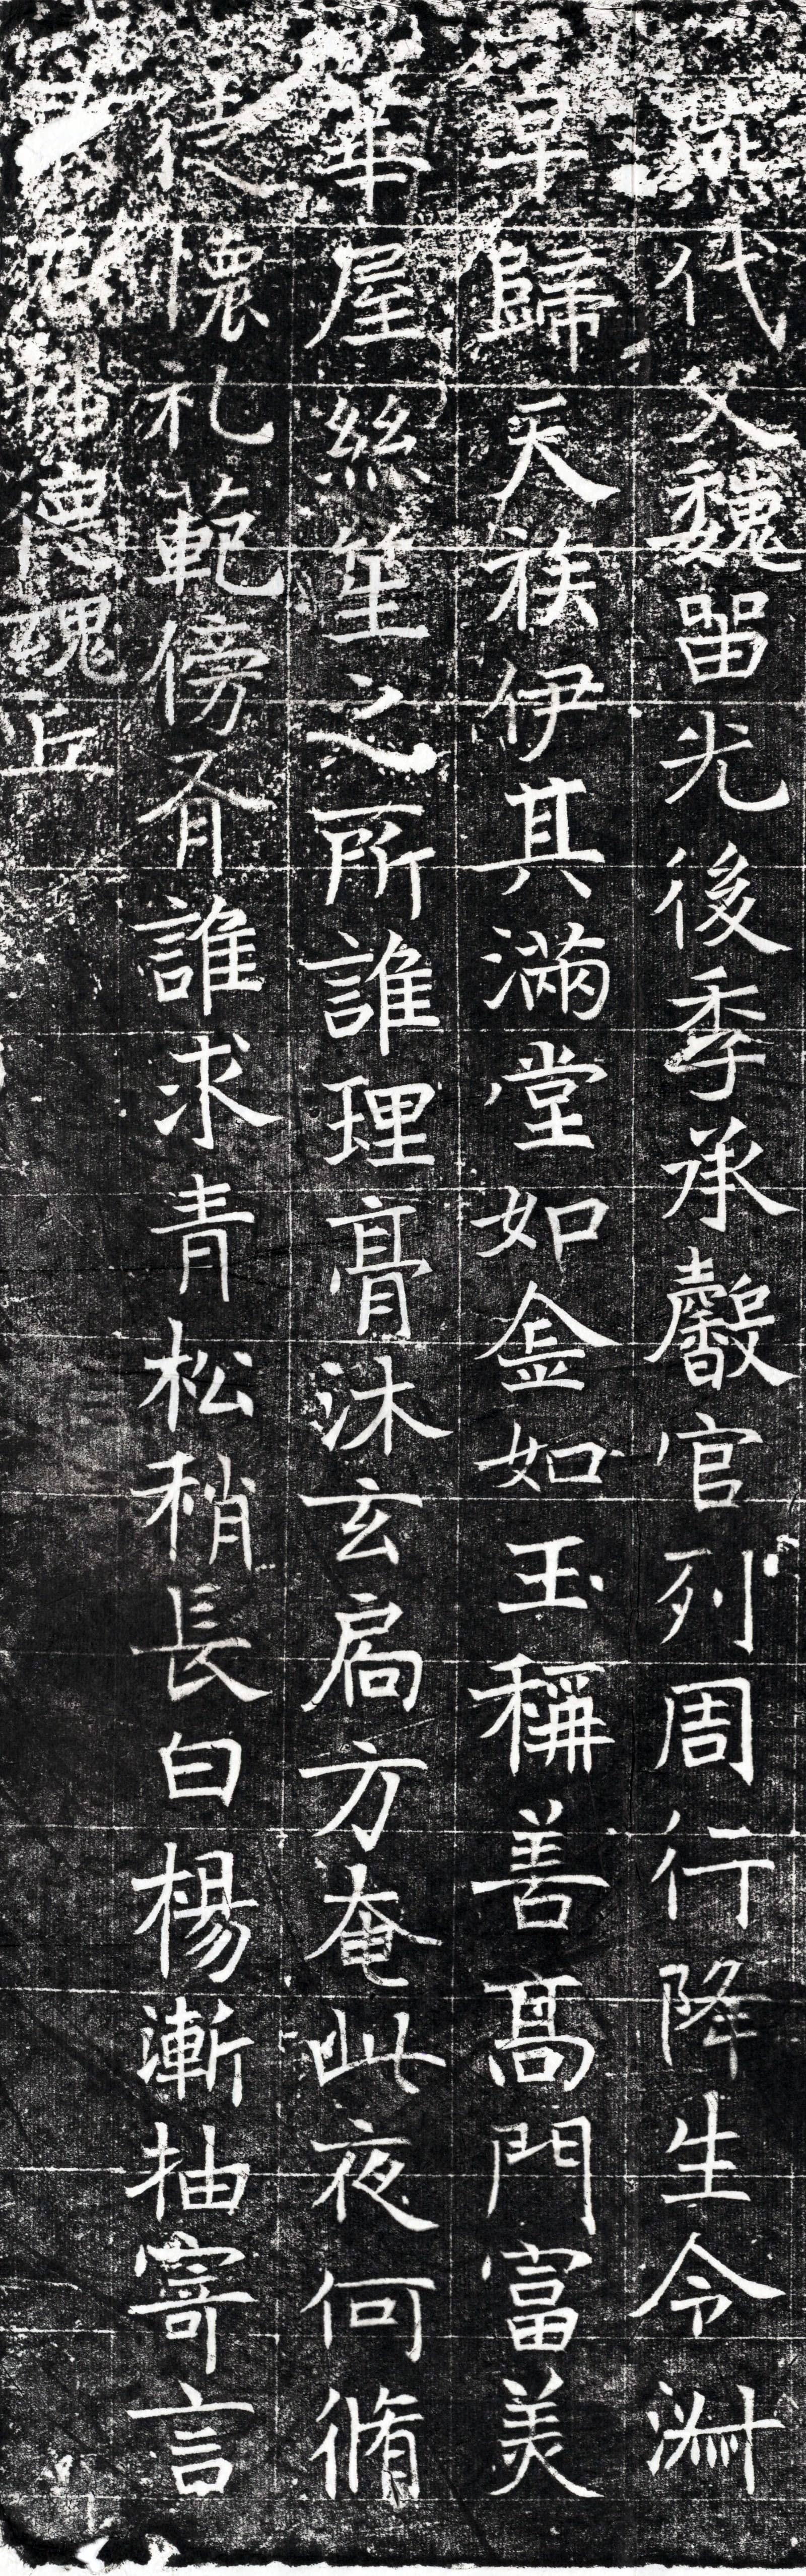 燕代父魏留光後季承馨官列周行降生令淵
早歸天族伊其滿堂如金如玉稱善高門富美
華屋絲篁之所誰理膏沐玄扃方奄此夜何脩
徒懷礼範傍有誰求青松稍長白楊漸抽寄言
德魂丘